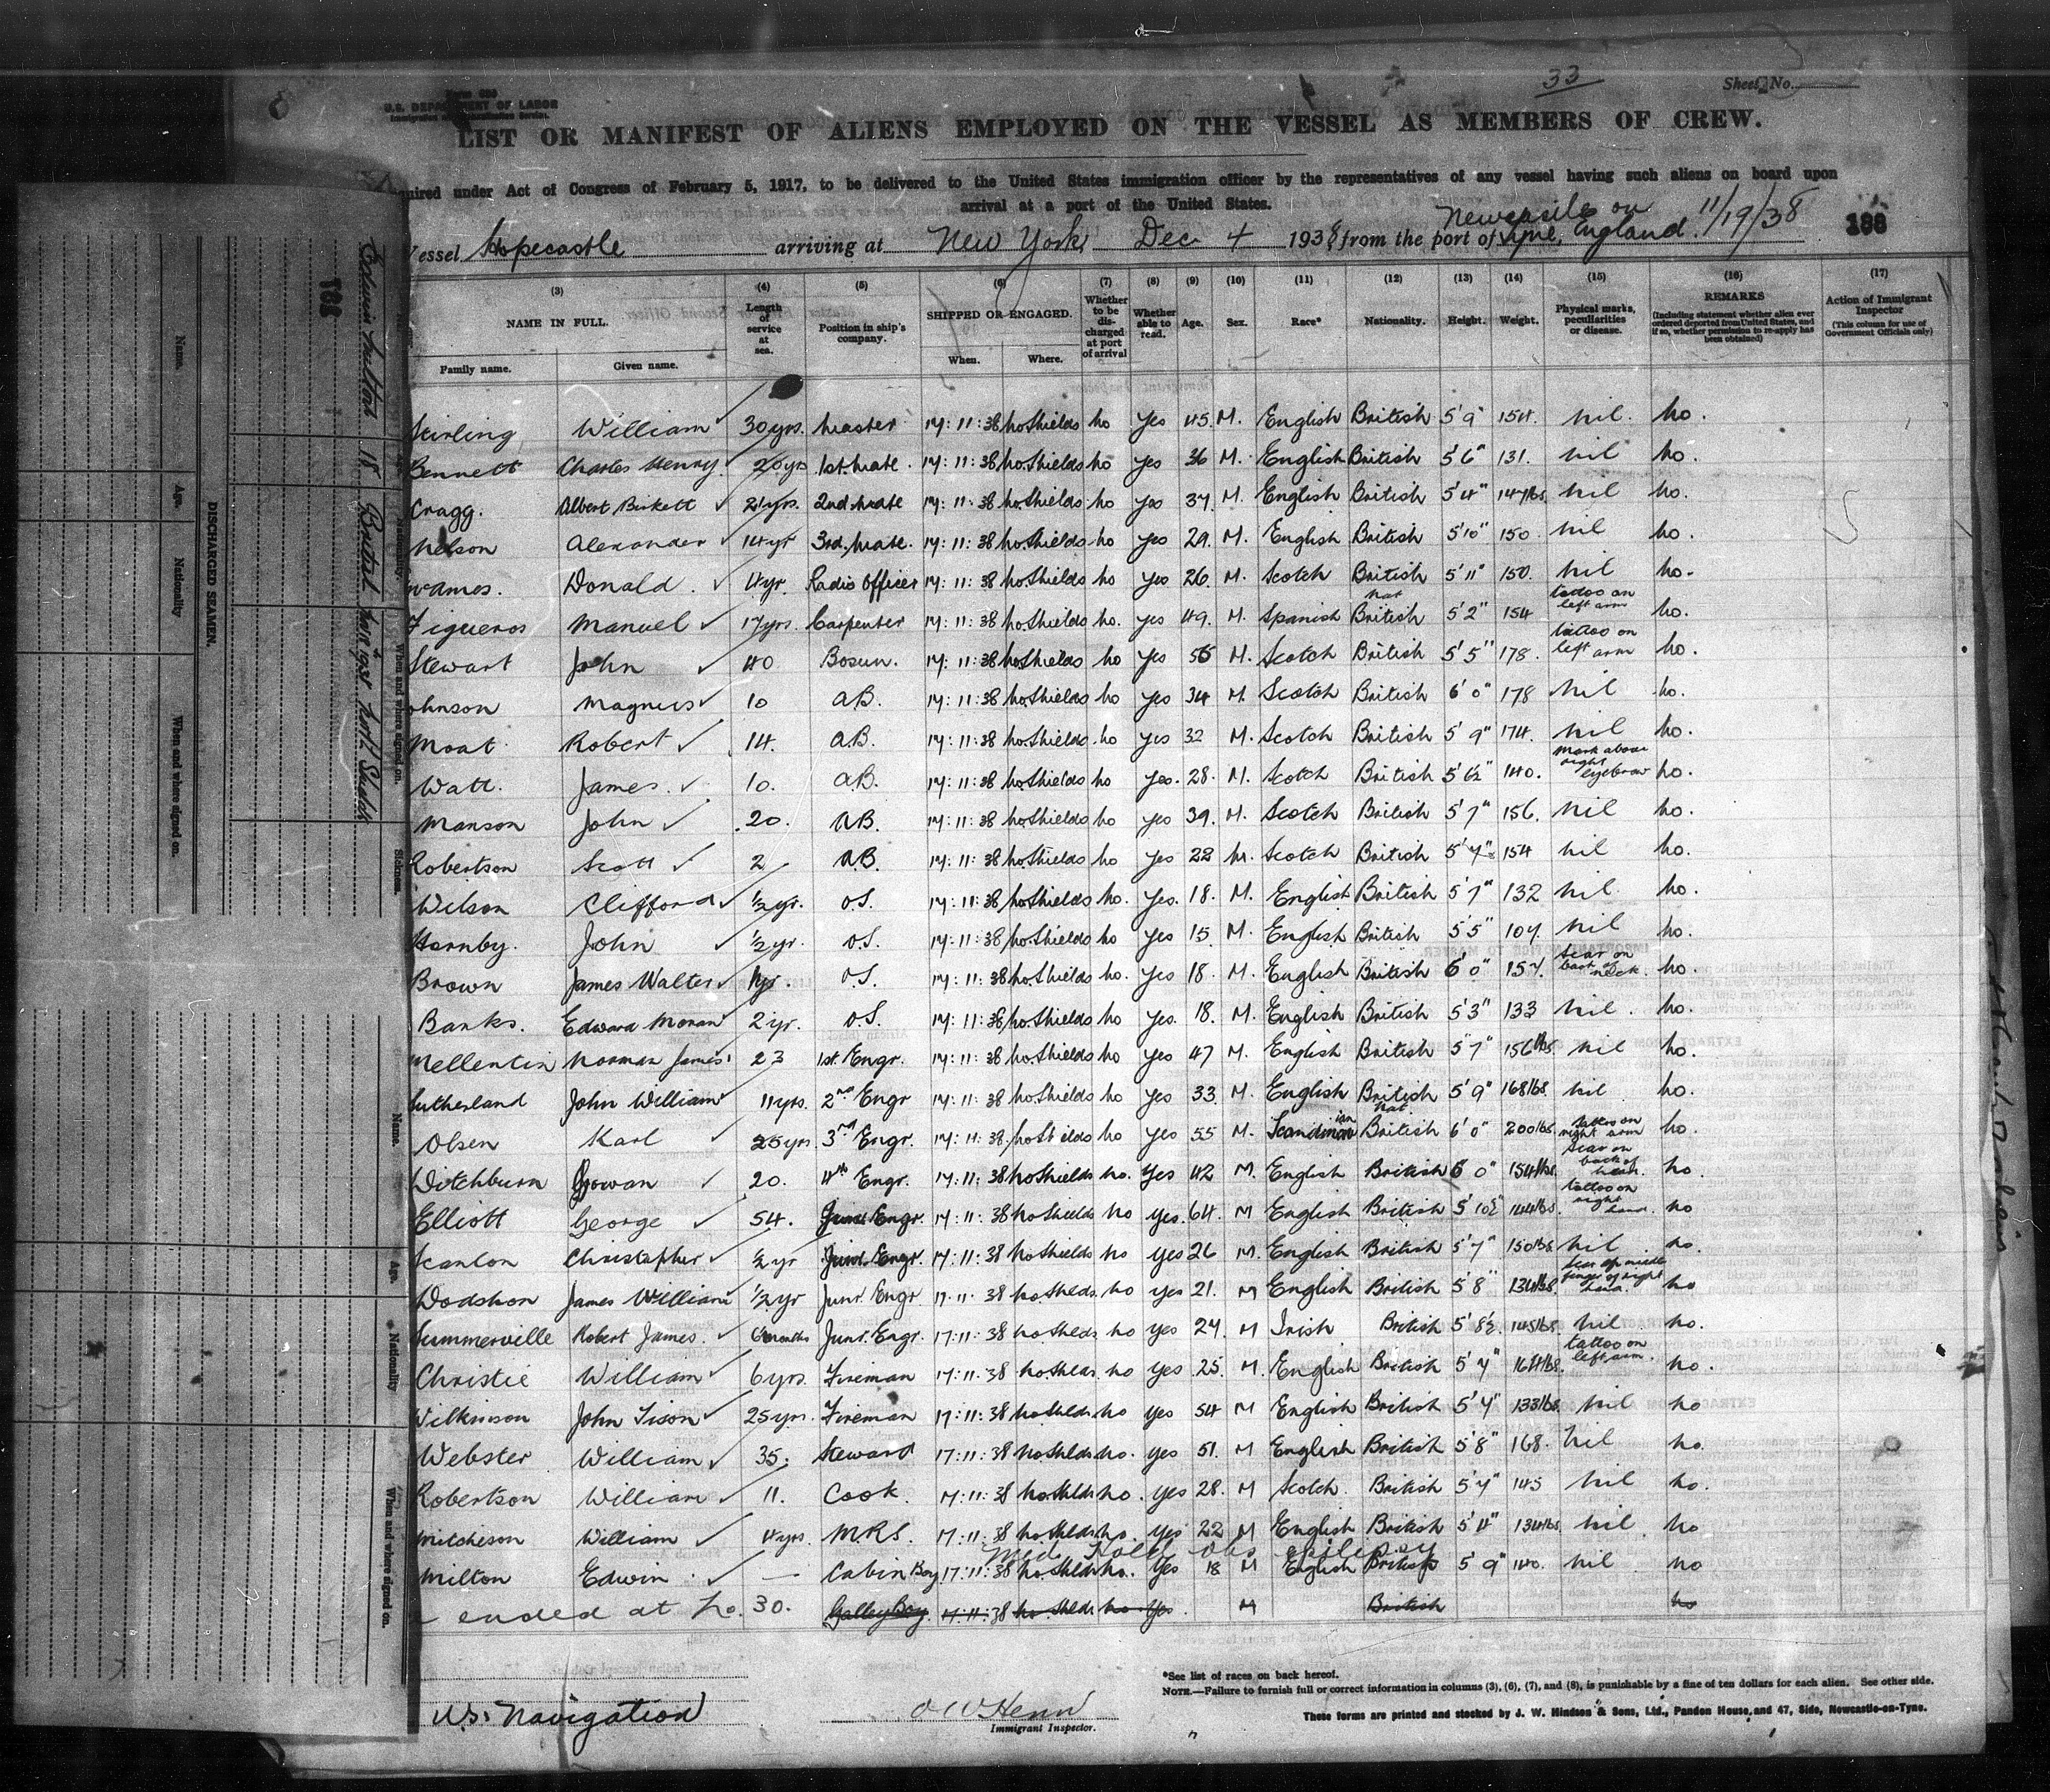 33
Sheet No.
Form 680
U.S. DEPARTMENT OF LABOR
Immigration and Naturalization Service.
LIST OR MANIFEST OF ALIENS EMPLOYED ON THE VESSEL AS MEMBERS OF CREW.
quired under Act of Congress of February 5, 1917, to be delivered to the United States immigration officer by the representatives of any vessel having such aliens on board upon
arrival at a port of the United States.
essel Hopecastle arriving at New York Dec 4 1938 from the port of Newcastle on Tyne, England. 11/19/38
(3) (4) (5) (6) (7) (8) (9) (10) (11) (12) (13) (14) (15) (16) (17)
NAME IN FULL. Length of service at sea. Position in ship's company. SHIPPED OR ENGAGED. Whether to be discharged at port of arrival Whether able to read. Age. Sex. Race* Nationality. Height. Weight. Physical marks, peculiarities or disease. REMARKS (Including statement whether alien ever ordered deported from United States, and if so, whether permission to re-apply has been obtained) Action of Immigrant Inspector (This column for use of Government Officials only)
Family name. Given name. When. Where.
Stirling William 30 yrs. Master 17:11:38 No Shields No Yes 45 M. English British 5'9" 154. Nil. No.
Bennett Charles Henry 20 yrs 1st Mate 17:11:38 No Shields No Yes 36 M. English British 5'6" 131. Nil No.
Cragg. Albert Birkett 21 yrs. 2nd Mate 17:11:38 No Shields No Yes 37. M. English British 5'4" 147 lbs. Nil No.
Nelson Alexander 14 yr 3rd. Mate. 17:11:38 No Shields No Yes 29. M. English British 5'10" 150 Nil No.
Donald 4 yr. Radio Officer 17:11:38 No Shields No Yes 26. M. Scotch British 5'11" 150. Nil No.
Figueros Manuel 17 yrs. Carpenter 17:11:38 No Shields No. Yes 49. M. Spanish Nat British 5'2" 154 tattoo on left arm No.
Stewart John 40 Bosun. 17:11:38 No Shields No Yes 55 M. Scotch British 5'5" 178. tattoo on left arm No.
ohnson Magnus 10 A.B. 17:11:38 No Shields No Yes 34 M. Scotch British 6'0" 178 Nil No.
Moat Robert 14. A.B. 17:11:38 No Shields No Yes 32 M. Scotch British 5'9" 174. Nil No.
Watt. James. 10. A.B. 17:11:38 No Shields No Yes. 28. M. Scotch British 5'6½" 140. Mark above right eyebrow No.
Manson John 20. A.B. 17:11:38 No Shields No Yes 39. M. Scotch British 5'7" 156. Nil No.
Robertson Scott 2 A.B. 17:11:38 No Shields No Yes 22 M. Scotch British 5'7" 154 Nil No.
Wilson Clifford ½ yr. O.S. 17:11:38 No Shields No. Yes. 18. M. English British 5'7" 132 Nil No.
Hornby. John ½ yr. O.S. 17:11:38 No Shields No Yes 15 M. English British 5'5" 107. Nil No.
Brown James Walter 1 yr. O.S. 17:11:38 No Shields No. Yes 18. M. English British 6'0" 157. Scar on back of neck. No.
Banks. Edward Moran 2 yr. O.S. 17:11:38 No Shields No Yes. 18. M. English British 5'3" 133 Nil. No.
Mellentin Norman James 23 1st. Engr. 17:11:38 No Shields No Yes 47 M. English British 5'7" 156 lbs. Nil No.
Sutherland John William 11 yrs. 2nd Engr 17:11:38 No Shields No Yes 33 M. English British 5'9" 168 lbs Nil No.
Olsen Karl 25 yrs 3rd Engr. 17:11:38. No Shields No Yes 55 M. Nat British 6'0" 200 lbs. Tattoo on right arm No.
Ditchburn Gowan 20. 4th Engr. 17:11:38 No Shields No. Yes 42 M. English British 6'0" 154 lbs. Scar on back of head. No
Elliott George 54. Engr. 17:11:38 No Shields No Yes. 64. M English British 5'10½" 144 lbs. tattoo on right hand. No
Scanlon Christopher ½ yr Junr. Engr. 17:11:38 No Shields No Yes 26 M. English British 5'7" 150 lbs. Nil. No.
Dodshon James William ½ yr Junr. Engr 17.11.38 No. Shlds. No Yes 21. M English British 5'8" 134 lbs. Scar on middle finger of right hand. No
Summerville Robert James. 6 months Junr. Engr. 17:11:38 No Shlds No Yes 24. M Irish British 5'8½. 145 lbs. Nil. No.
Christie William 6 yrs. Fireman 17:11:38 No. Shlds No Yes 25. M English British 5'7" 164 lbs. tattoo on left arm. No.
Wilkinson John Tison 25 yrs. Fireman 17:11:38 No Shlds No Yes 54 M English British 5'4" 133 lbs. Nil No
Webster William 35. Steward 17:11:38 No Shlds No. Yes 51. M English British 5'8" 168. Nil No.
Robertson William 11. Cook. 17:11:38 No. Shlds No. Yes 28. M Scotch. British 5'7" 145 Nil No.
Mitcheson William 4 yrs. M.R.S. 17:11:38 No Shlds No. Yes 22 M English British 5'4" 134 lbs. Nil. No
Med. Hold obs epilepsy
Milton Edwin — Cabin Boy 17:11:38 No. Shlds No. Yes 18 M English British 5'9" 140. Nil No
ended at No. 30. Galley Boy 17.11.38 No Shlds No Yes. M British No
*See list of races on back hereof.
NOTE.—Failure to furnish full or correct information in columns (3), (6), (7), and (8), is punishable by a fine of ten dollars for each alien. See other side.
U.S. Navigation
Immigrant Inspector.
These forms are printed and stocked by J. W. Hindson & Sons, Ltd., Pandon House, and 47, Side, Newcastle-on-Tyne.
DISCHARGED SEAMEN.
Name. Age. Nationality When and where signed on.
Name. Age. Nationality When and where signed on.
Nationality. When and where signed on. Sickness.
Edwin Milton 18 British North Shields